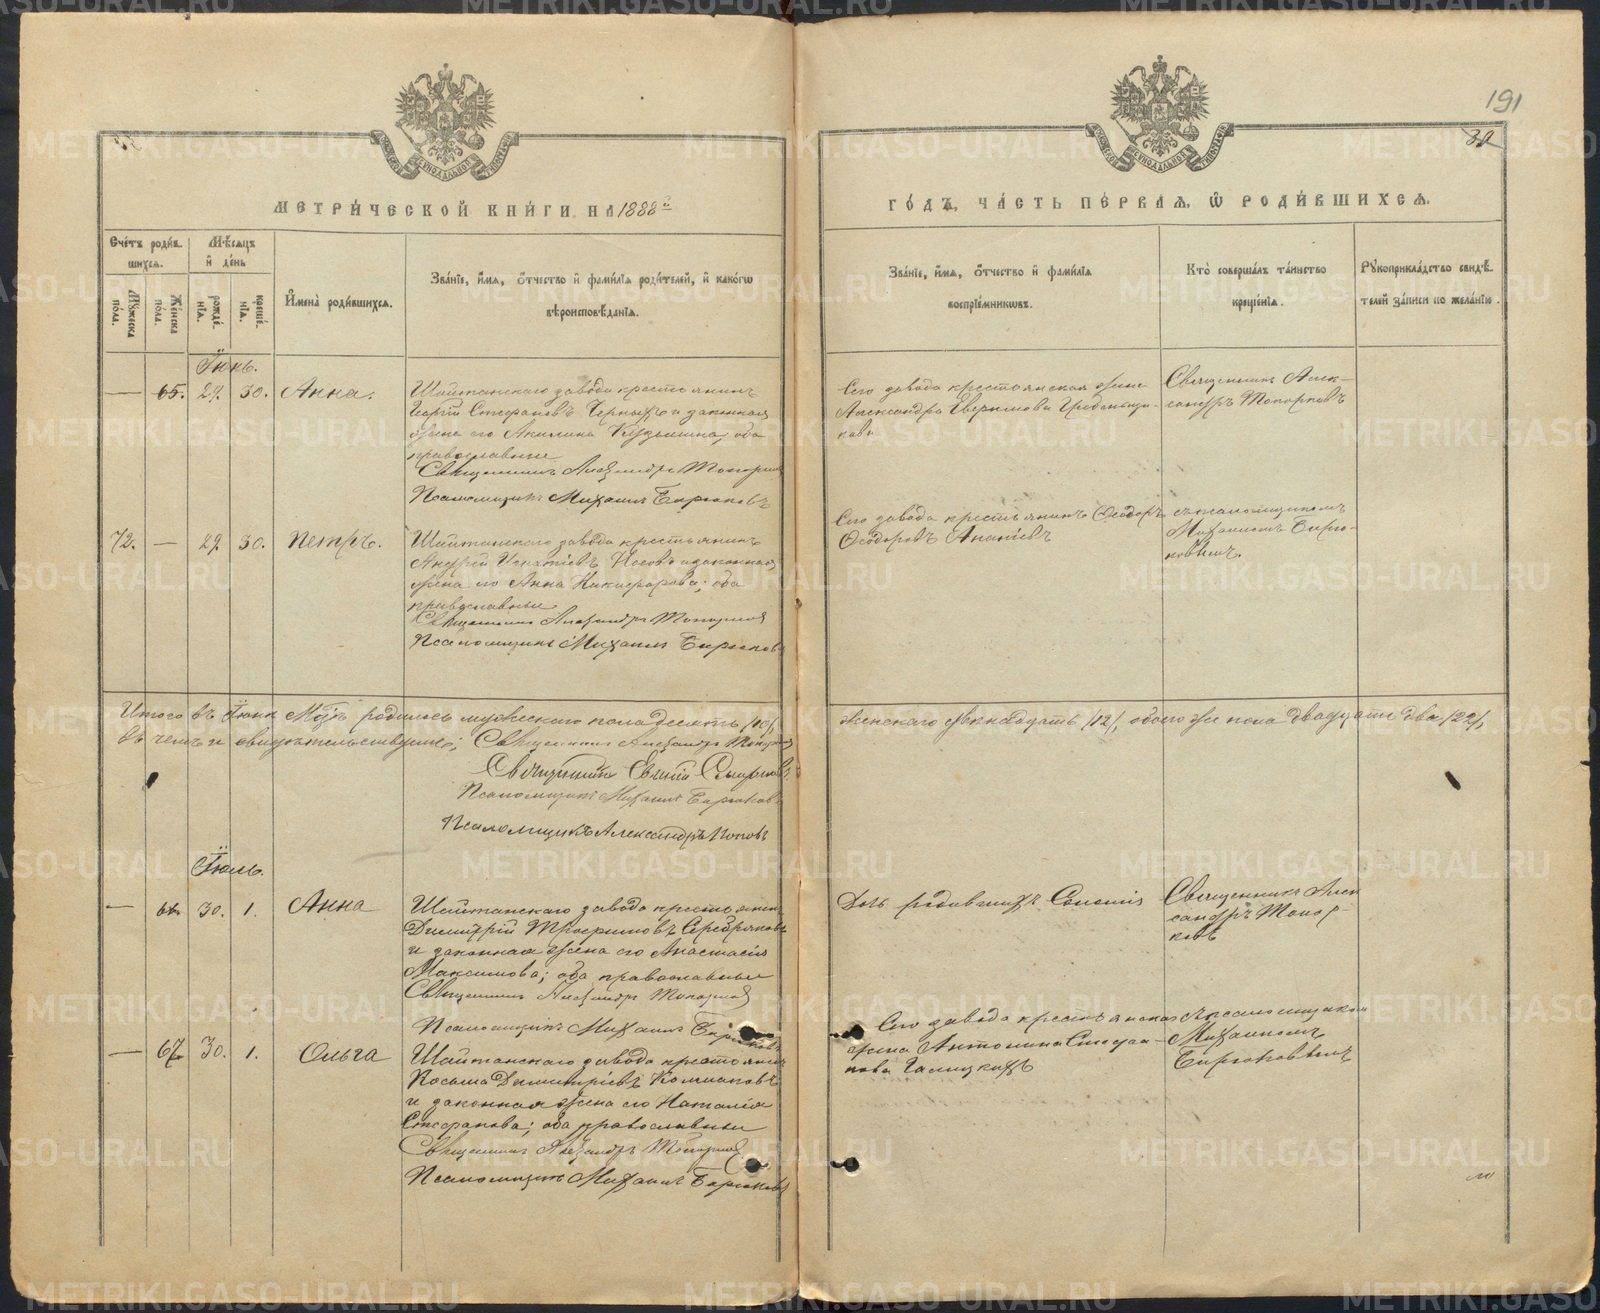 191
32
МЕТРИ́ЧЕСКОЙ КНИ́ГИ НА 1888й
ГО́ДЪ, ЧА́СТЬ ПЕ́РВАЯ, Ѡ РОДИ́ВШИХСЯ.
Сче́тъ роди́вшихся.
Мѣ́сяцъ и де́нь
Му́жеска по́ла.
Же́нска по́ла.
рожде́нїя.
креще́нїя.
И҆мена̀ роди́вшихся.
Зва́нїе, и҆́мя, ѻ҆́тчество и҆ фами́лїя роди́телей, и҆ како́гѡ вѣроисповѣ́данїя.
Зва́нїе, и҆́мя, ѻ҆́тчество и҆ фами́лїя воспрїе́мниковъ.
Кто̀ соверша́лъ та́инство креще́нїя.
Рукоприкла́дство свидѣ́телей за́писи по жела́нїю.
Іюнь.
— 65. 29. 30. Анна.
Шайтанскаго завода крестьянинъ
Георгій Стефановъ Черныхъ и законная
жена его Акилина Кузьмина, оба
православные
Священникъ Александръ Топорковъ
Псаломщикъ Михаилъ Бирюковъ
Сего завода крестьянская жена
Александра Аверкиева Гребенщи-
кова
Священникъ Алек-
сандръ Топорковъ
72. — 29. 30. Петръ.
Шайтанскаго завода крестьянинъ
Андрей Игнатіевъ Носовъ и законная
жена его Анна Никифорова; оба
православные
Священникъ Александръ Топорковъ
Псаломщикъ Михаилъ Бирюковъ
Сего завода крестьянинъ Ѳеодоръ
Ѳеодоровъ Ананіевъ
съ псаломщикомъ
Михаиломъ Бирю-
ковымъ.
Итого въ Іюнѣ М҃цѣ родилось мужескаго пола десять /10/,
женскаго двенадцать /12/, обоего же пола двадцать два /22/,
въ чемъ и свидѣтельствуемъ; Священникъ Александръ Топорковъ
Священникъ Евгеній Смирновъ
Псаломщикъ Михаилъ Бирюковъ
Псаломщикъ Александръ Поповъ
Іюль.
— 66. 30. 1. Анна
Шайтанскаго завода крестьянинъ
Димитрій Трофимовъ Серебряковъ
и законная жена его Анастасія
Максимова; оба православные
Священникъ Александръ Топорковъ
Псаломщикъ Михаилъ Бирюковъ
Дочь родившихъ
Священникъ Алек
сандръ Топор-
ковъ
— 67. 30. 1. Ольга
Шайтанскаго завода крестьянинъ
Косьма Димитріевъ Колмаковъ
и законная жена его Наталія
Стефанова; оба православные
Священникъ Александръ Топорковъ
Псаломщикъ Михаилъ Бирюковъ
Сего завода крестьянская
жена Антонина Стефа-
нова Галицкихъ
съ псаломщикомъ
Михаиломъ
Бирюковымъ
METRIKI.GASO-URAL.RU